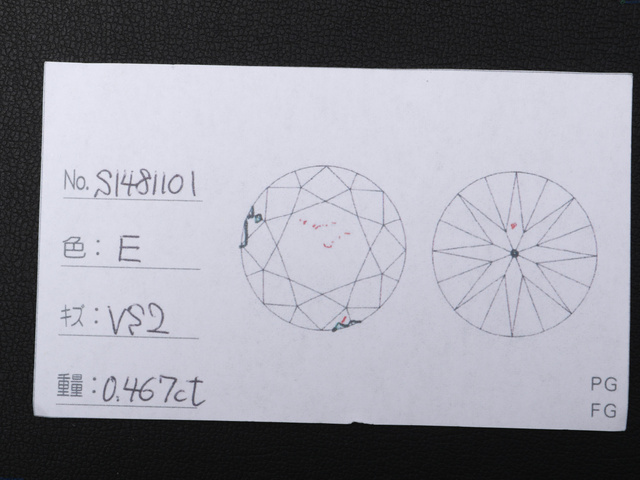 No. S1481101
色: E
キズ: VS2
重量: 0.467ct
PG
FG